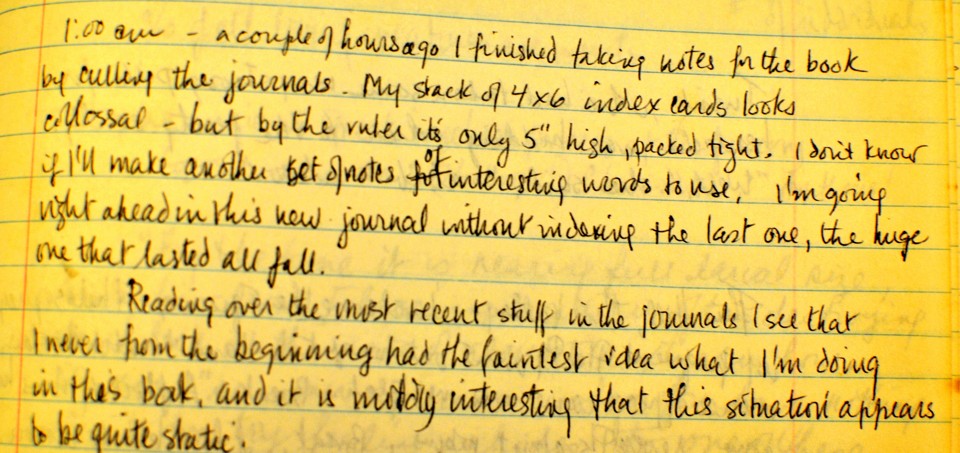 1:00 am - a couple of hours ago I finished taking notes for the book
by culling the journals. My stack of 4x6 index cards looks
collossal - but by the ruler it's only 5" high, packed tight. I don't know
if I'll make another set of notes of interesting words to use. I'm going
right ahead in this new journal without indexing the last one, the huge
one that lasted all fall.
Reading over the most recent stuff in the journals I see that
I never from the beginning had the faintest idea what I'm doing
in this book, and it is mildly interesting that this situation appears
to be quite static.